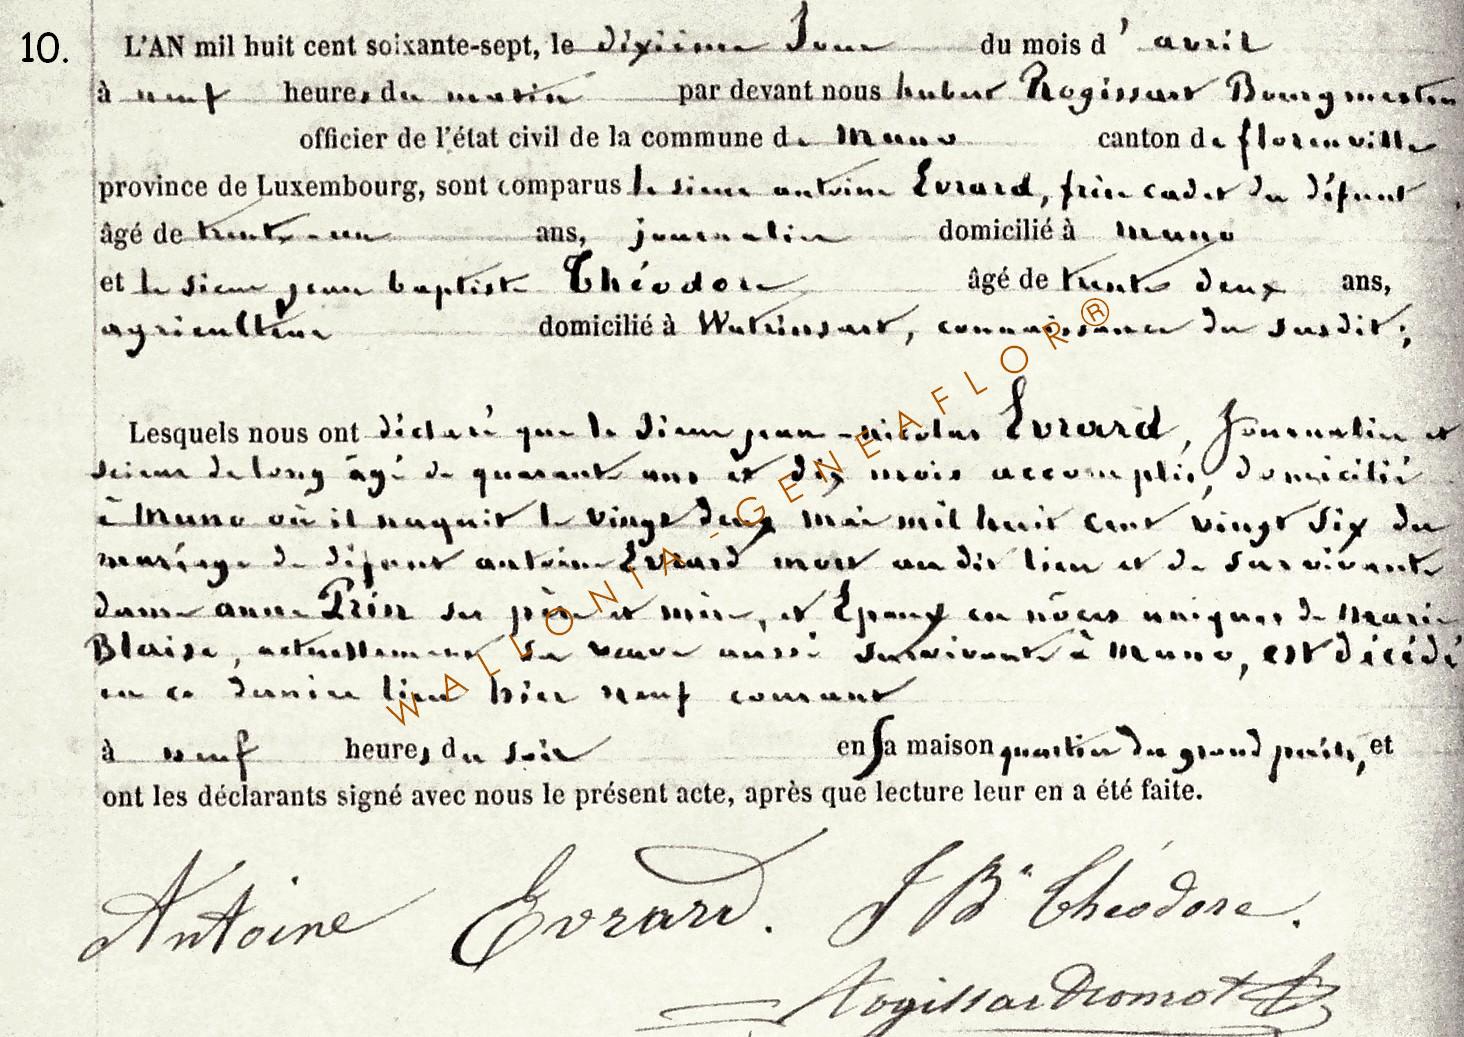 10.
L'AN mil huit cent soixante-sept, le dixième Jour du mois d' avril
à neuf heures du matin par devant nous hubert Rogissart Bourgmestre
officier de l'état civil de la commune de Muno canton de florenville
province de Luxembourg, sont comparus le sieur antoine Evrard, frère cadet du défunt
âgé de trente-un ans, journalier domicilié à muno
et le sieur jean baptiste Théodore âgé de trente deux ans,
agriculteur domicilié à Watrinsart, connaissance du susdit;
Lesquels nous ont déclaré que le Sieur jean-nicolas Evrard, Journalier et
scieur de long âgé de quarante ans et dix mois accomplis, domicilié
à Muno où il naquit le vingt deux mai mil huit cent vingt six du
mariage de défunt antoine Evrard mort au dit lieu et de Survivante
dame anne Prin ses père et mère, et Epoux en nôces uniques de Marie
Blaise, actuellement sa veuve aussi survivante à Muno, est décédé
en ce dernier lieu hier neuf courant
à neuf heures du soir en sa maison quartier du grand , et
ont les déclarants signé avec nous le présent acte, après que lecture leur en a été faite.
Antoine Evrard. J Bte Théodore.
WALLONIA-GENEAFLOR®